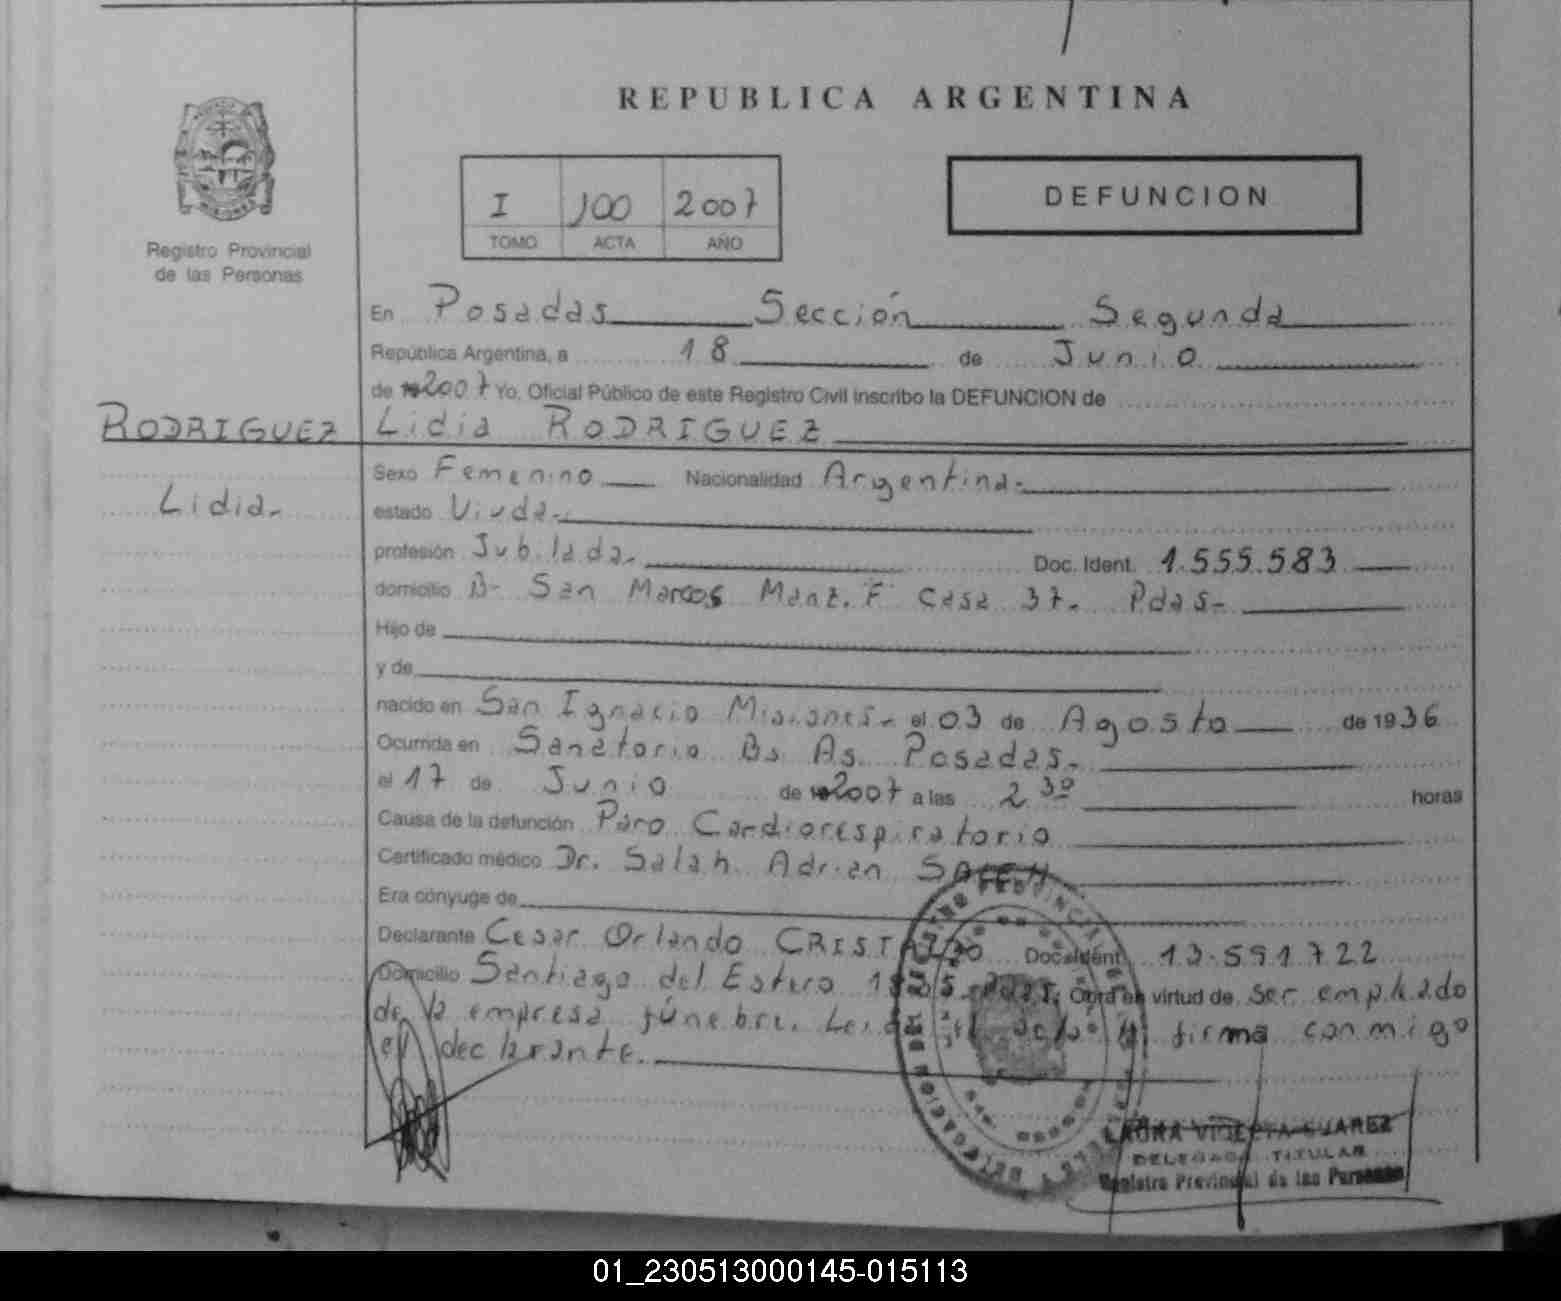 REPUBLICA ARGENTINA
I 100 2007
TOMO ACTA AÑO
DEFUNCION
Registro Provincial
de las Personas
En Posadas Sección Segunda
República Argentina, a 18 de Junio
de 2007 Yo, Oficial Público de este Registro Civil inscribo la DEFUNCION de
RODRIGUEZ Lidia RODRIGUEZ
Lidia.
Sexo Femenino Nacionalidad Argentina.
estado Viuda.
profesión Jubilada. Doc. Ident. 1.555.583
domicilio B- San Marcos Manz. F Casa 37. Pdas-
Hijo de
y de
nacido en San Ignacio Misiones- el 03 de Agosto de 1936
Ocurrida en Sanatorio Bs As. Posadas.
el 17 de Junio de 2007 a las 2 30 horas
Causa de la defunción Paro Cardiorespiratorio
Certificado médico Dr. Salah Adrian
Era cónyuge de
Declarante Cesar Orlando Doc. Ident. 13.591.722
Domicilio Santiago del Estero Obra en virtud de ser empleado
de la empresa fúnebre. firma conmigo
el declarante.
LAURA SUAREZ
DELEGADA TITULAR
Registro Provincial de las Personas
01_230513000145-015113